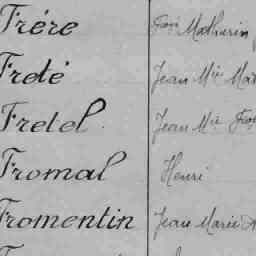 Frére Fçois Mathurin
Freté Jean Mie Mat
Fretel Jean Mie Fço
Fromal Henri
Fromentin Jean Marie A